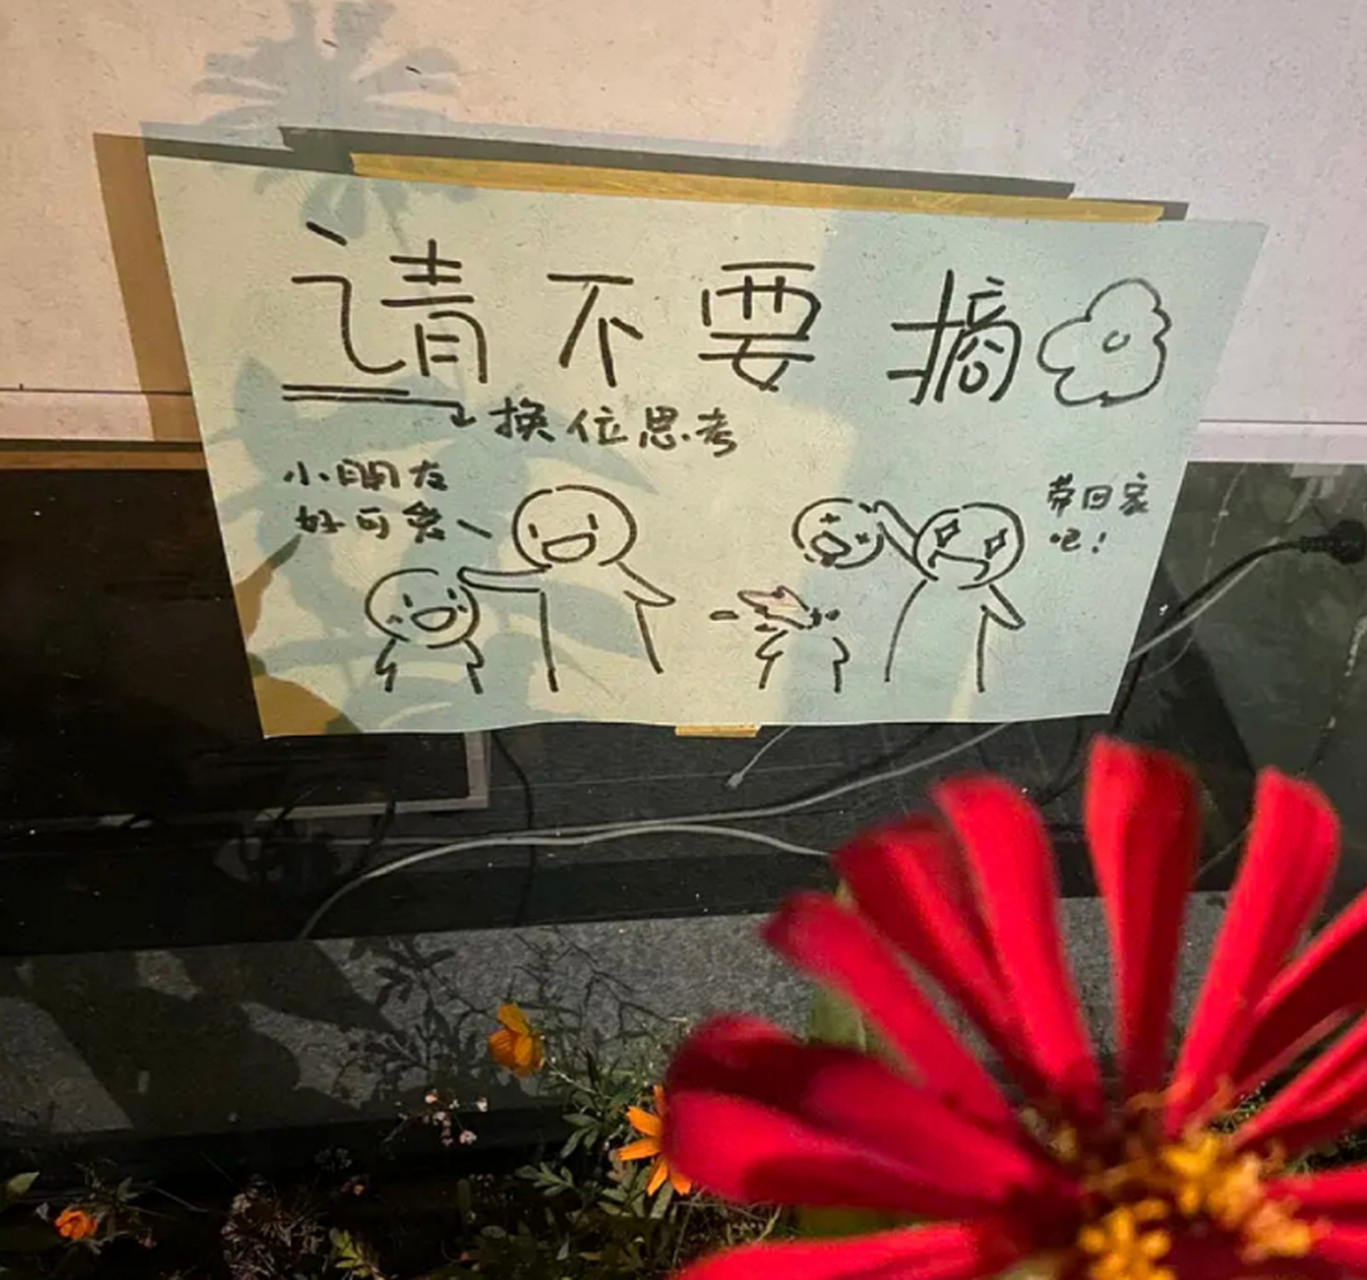 请不要摘
换位思考
小朋友
好可爱
带回家
吧！